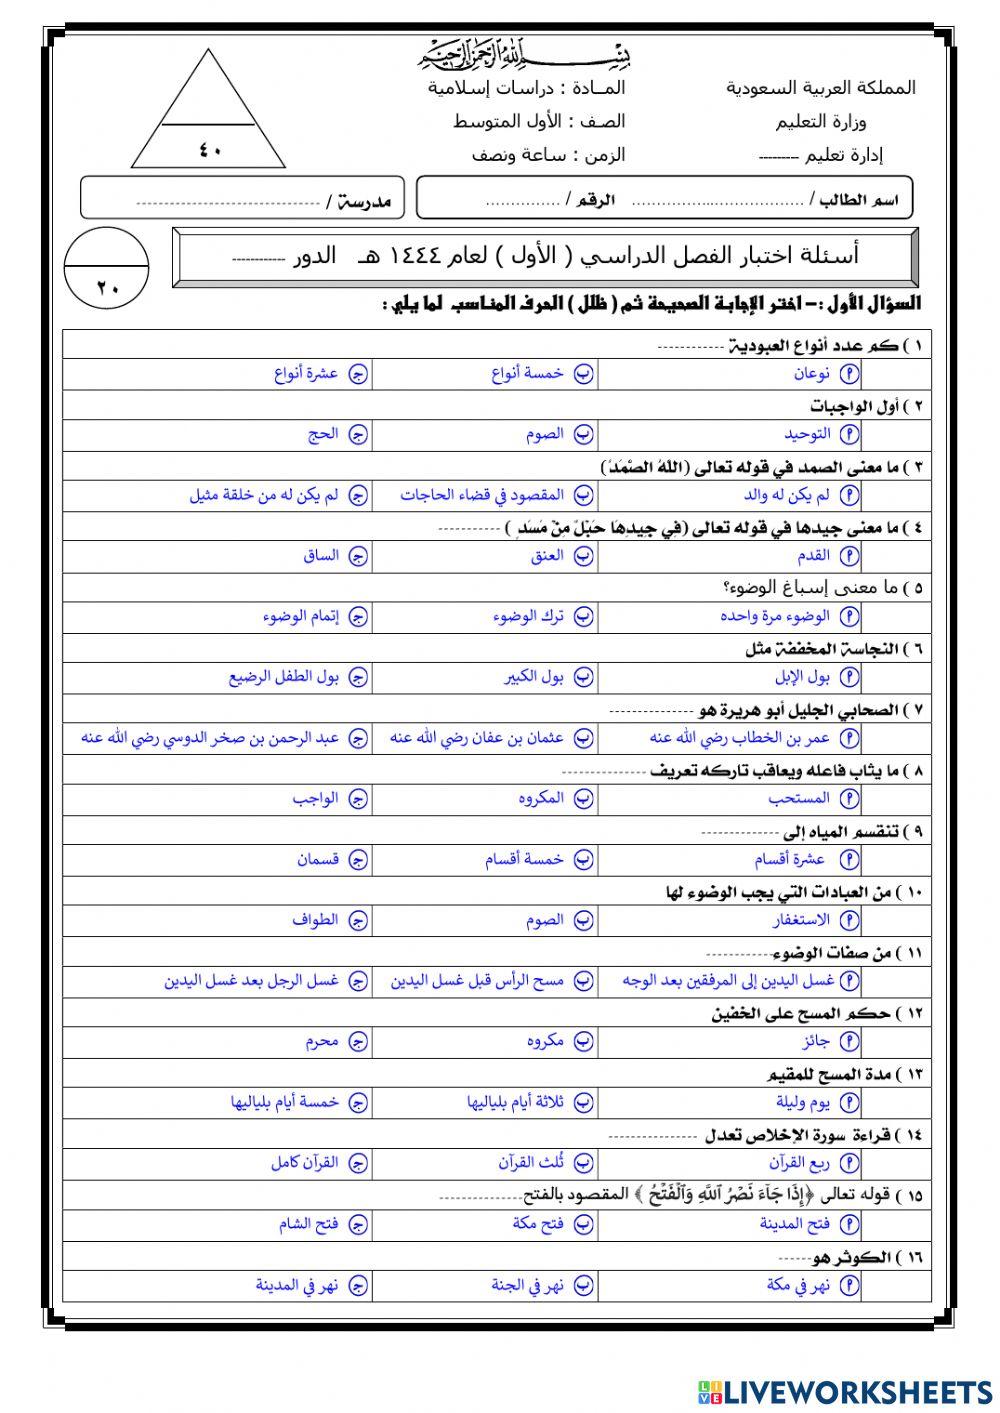 بسم الله الرحمن الرحيم
المملكة العربية السعودية
وزارة التعليم
إدارة تعليم ---------
المـادة : دراسات إسلامية
الصف : الأول المتوسط
الزمن : ساعة ونصف
٤٠
اسم الطالب / .................................. الرقم / ..............
مدرسة / ------------------------------
أسئلة اختبار الفصل الدراسي ( الأول ) لعام ١٤٤٤ هـ الدور ------------
٢٠
السؤال الأول :- اختر الإجابة الصحيحة ثم ( ظلل ) الحرف المناسب لما يلي :
١ ) كم عدد أنواع العبودية ------------
أ نوعان ب خمسة أنواع ج عشرة أنواع
٢ ) أول الواجبات
أ التوحيد ب الصوم ج الحج
٣ ) ما معنى الصمد في قوله تعالى (اللَّهُ الصَّمَدُ)
أ لم يكن له والد ب المقصود في قضاء الحاجات ج لم يكن له من خلقة مثيل
٤ ) ما معنى جيدها في قوله تعالى (فِي جِيدِهَا حَبْلٌ مِنْ مَسَدٍ ) -----------
أ القدم ب العنق ج الساق
٥ ) ما معنى إسباغ الوضوء؟
أ الوضوء مرة واحده ب ترك الوضوء ج إتمام الوضوء
٦ ) النجاسة المخففة مثل
أ بول الإبل ب بول الكبير ج بول الطفل الرضيع
٧ ) الصحابي الجليل أبو هريرة هو --------------
أ عمر بن الخطاب رضي الله عنه ب عثمان بن عفان رضي الله عنه ج عبد الرحمن بن صخر الدوسي رضي الله عنه
٨ ) ما يثاب فاعله ويعاقب تاركه تعريف --------------
أ المستحب ب المكروه ج الواجب
٩ ) تنقسم المياه إلى -------------
أ عشرة أقسام ب خمسة أقسام ج قسمان
١٠ ) من العبادات التي يجب الوضوء لها
أ الاستغفار ب الصوم ج الطواف
١١ ) من صفات الوضوء------------
أ غسل اليدين إلى المرفقين بعد الوجه ب مسح الرأس قبل غسل اليدين ج غسل الرجل بعد غسل اليدين
١٢ ) حكم المسح على الخفين
أ جائز ب مكروه ج محرم
١٣ ) مدة المسح للمقيم
أ يوم وليلة ب ثلاثة أيام بلياليها ج خمسة أيام بلياليها
١٤ ) قراءة سورة الإخلاص تعدل ---------------
أ ربع القرآن ب ثُلث القرآن ج القرآن كامل
١٥ ) قوله تعالى ﴿إِذَا جَآءَ نَصْرُ ٱللَّهِ وَٱلْفَتْحُ ﴾ المقصود بالفتح--------------
أ فتح المدينة ب فتح مكة ج فتح الشام
١٦ ) الكوثر هو------
أ نهر في مكة ب نهر في الجنة ج نهر في المدينة
LIVE LIVEWORKSHEETS